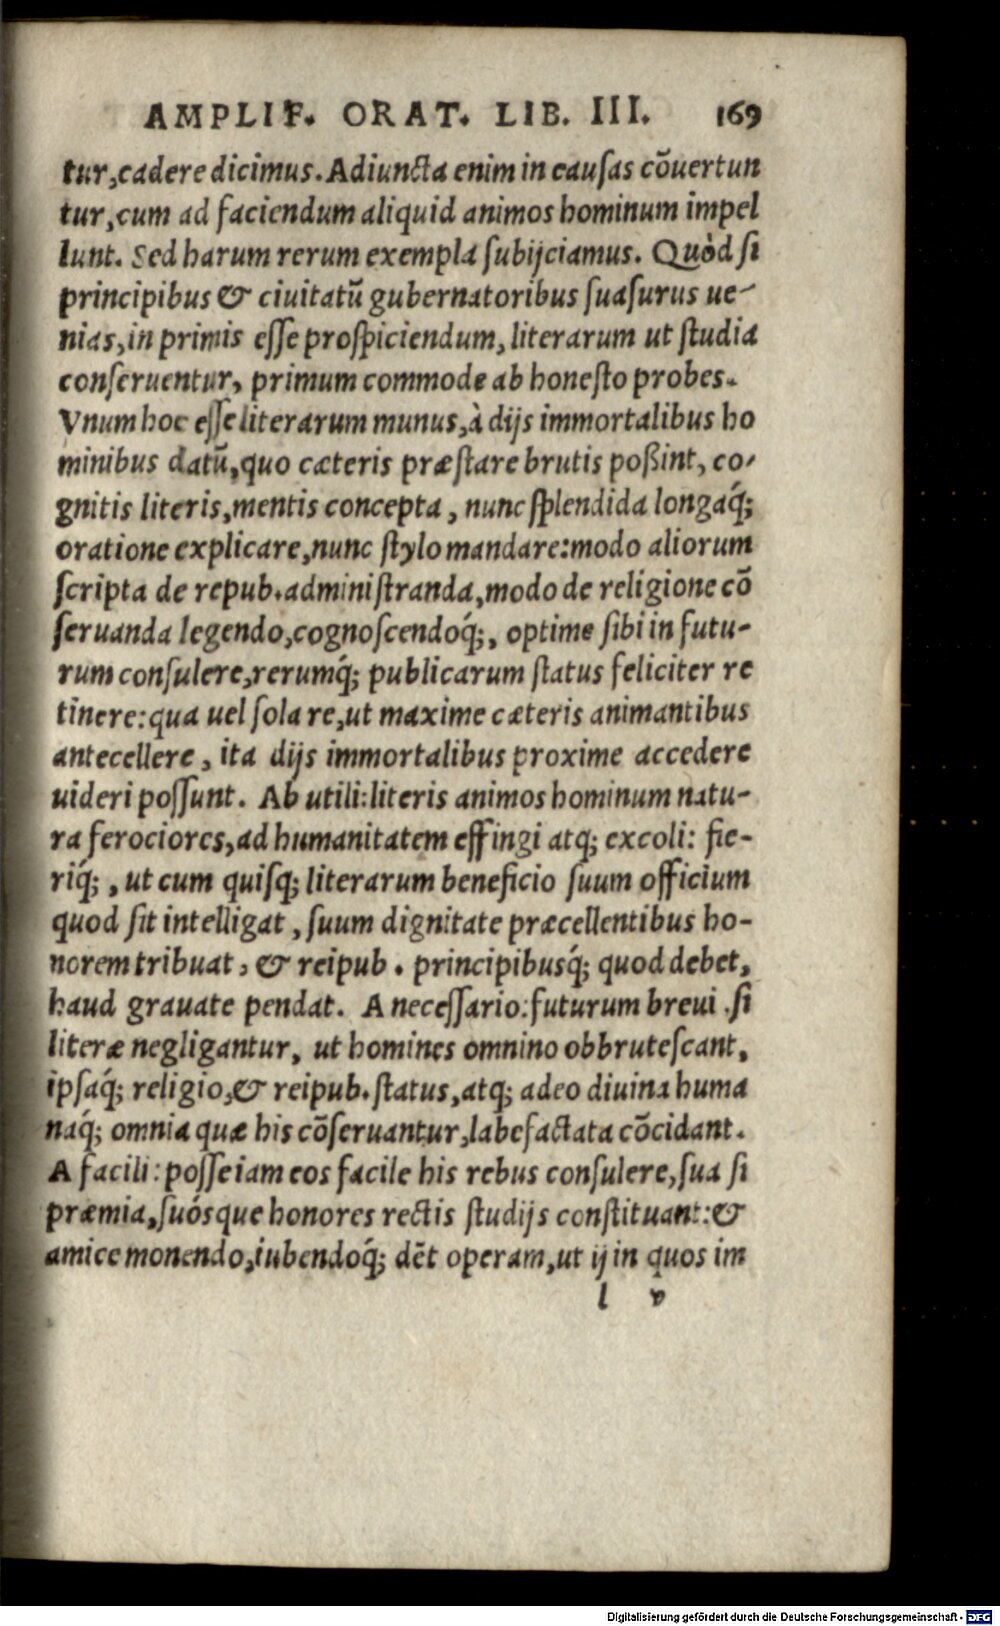 AMPLIF. ORAT. LIB. III. 169
tur, cadere dicimus. Adiuncta enim in causas cõuertun
tur, cum ad faciendum aliquid animos hominum impel
lunt. Sed harum rerum exempla subijciamus. Quòd si
principibus & ciuitatũ gubernatoribus suasurus ue-
nias, in primis esse prospiciendum, literarum ut studia
conseruentur, primum commode ab honesto probes.
Vnum hoc esse literarum munus, à dijs immortalibus ho
minibus datũ, quo cæteris præstare brutis poßint, co-
gnitis literis, mentis concepta, nunc splendida longaq́;
oratione explicare, nunc stylo mandare: modo aliorum
scripta de repub. administranda, modo de religione cõ
seruanda legendo, cognoscendoq́;, optime sibi in futu-
rum consulere, rerumq́; publicarum status feliciter re
tinere: qua uel sola re, ut maxime cæteris animantibus
antecellere, ita dijs immortalibus proxime accedere
uideri possunt. Ab utili: literis animos hominum natu-
ra ferociores, ad humanitatem effingi atq; excoli: fie-
riq́;, ut cum quisq; literarum beneficio suum officium
quod sit intelligat, suum dignitate præcellentibus ho-
norem tribuat, & reipub. principibusq́; quod debet,
haud grauate pendat. A necessario: futurum breui si
literæ negligantur, ut homines omnino obbrutescant,
ipsaq́; religio, & reipub. status, atq; adeo diuina huma
naq́; omnia quæ his cõseruantur, labefactata cõcidant.
A facili: posse iam eos facile his rebus consulere, sua si
præmia, suósque honores rectis studijs constituant: &
amice monendo, iubendoq́; dẽt operam, ut ij in quos im
l v
Digitalisierung gefördert durch die Deutsche Forschungsgemeinschaft - DFG